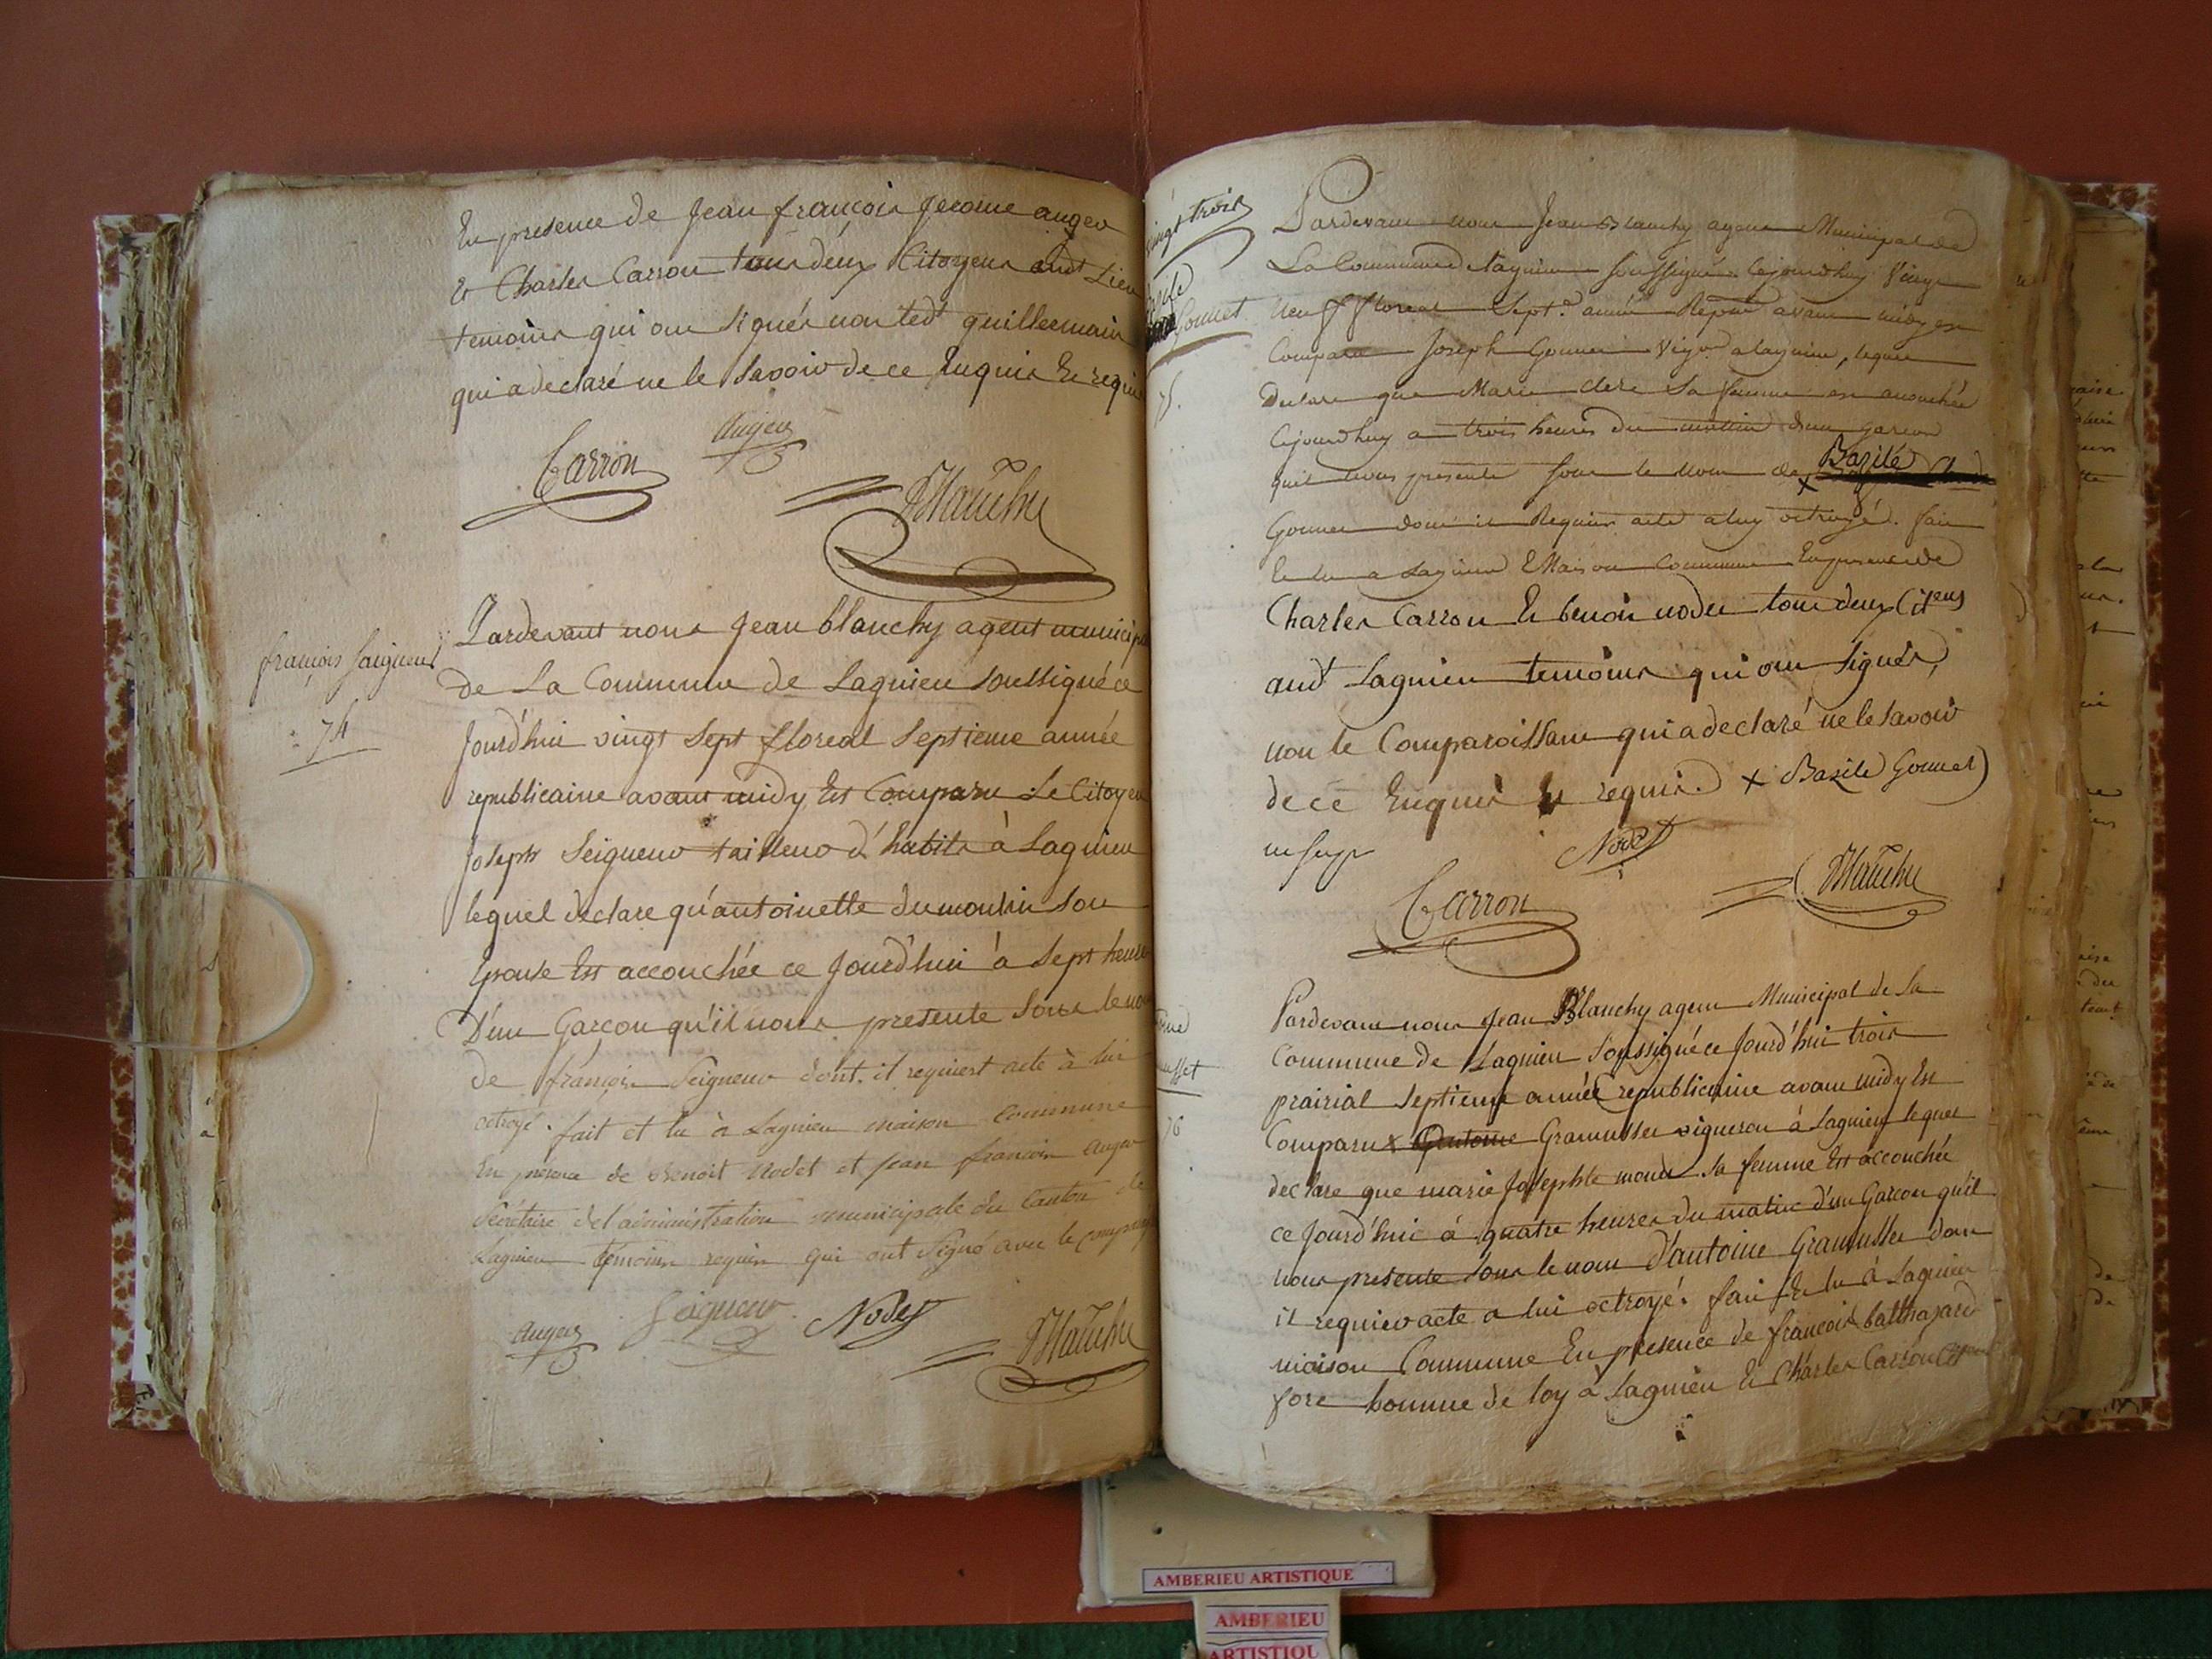 En presence de Jean françois Jerome auger
Et Charles Carron tous deux Citoyens audt Lieu
temoins qui ont signés non ledt guillermain
qui a declaré ne le savoir de ce Enquis Et requis
Carron
Auger
françois Saigneur
74
Pardevant nous Jean blanchy agent municipal
de La Commune de Lagnieu soussigné ce
Jourd'hui vingt sept floreal septieme année
republicaine avant midy Est Comparu Le Citoyen
Joseph Seigneur tailleur d'habits à Lagnieu
lequel declare qu'antoinette dumoulin son
Epouse Est accouchée ce Jourd'hui à sept heures
D'un Garcon qu'il nous presente sous le nom
de françois Seigneur dont il requiert acte à lui
octroyé. fait et lu à Lagnieu maison commune
En présence de Benoit Nodet et Jean francois auger
Secrétaire de l'administration municipale du Canton de
Lagnieu témoins requis qui ont signé avec le
Auger
Saigneur
Nodet
vingt trois
Gonnet
75.
Pardevant nous Jean Blanchy agent Municipal de
La Commune de Lagnieu soussigné Cejourdhuy Vingt
neuf floreal Sept.e année Repne avant midy est
Comparu Joseph Gonnet Vign alagnieu, lequel
Declare que Marie clere Sa femme est acouchée
Cejourdhuy a trois heures du mattin dun garcon
quil nous presente sous le nom de x Bazile
Gonnet dont il Requiert acte aluy octroyé. fait
Et lu a Lagnieu Maison Commune En presence de
Charles Carron Et benoit nodet tous deux Citens
audt Lagnieu temoins qui ont signés,
non le Comparoissant qui a declaré ne le savoir
de ce Enquis Et requis. x Bazile Gonnet)
Nodet
Carron
76
Pardevant nous Jean Blanchy agent Municipal de La
Commune de Lagnieu soussigné ce Jourd'hui trois
prairial septieme année republicaine avant midy Est
Comparu x Antoine Gramusset vigneron à Lagnieu lequel
declare que marie Josephte monet sa femme Est accouchée
ce Jourd'hui à quatre heures du matin d'un Garcon qu'il
nous presente sous le nom d'antoine Gramusset dont
il requiert acte a lui octroyé. fait Et lu à Lagnieu
maison Commune En presence de francois balthazard
fore homme de loy à Lagnieu Et Charles Carron Citens
AMBERIEU ARTISTIQUE
AMBERIEU